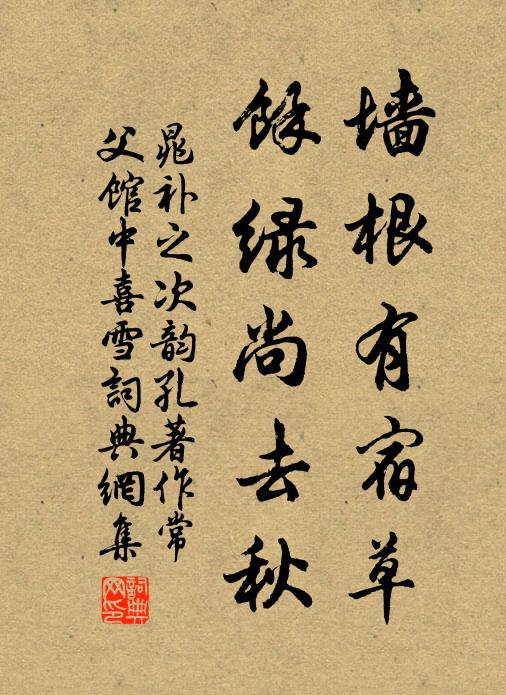 墙根有宿草
馀绿尚去秋
晁补之次韵孔著作常
父馆中喜雪詞典網集
詞典网印